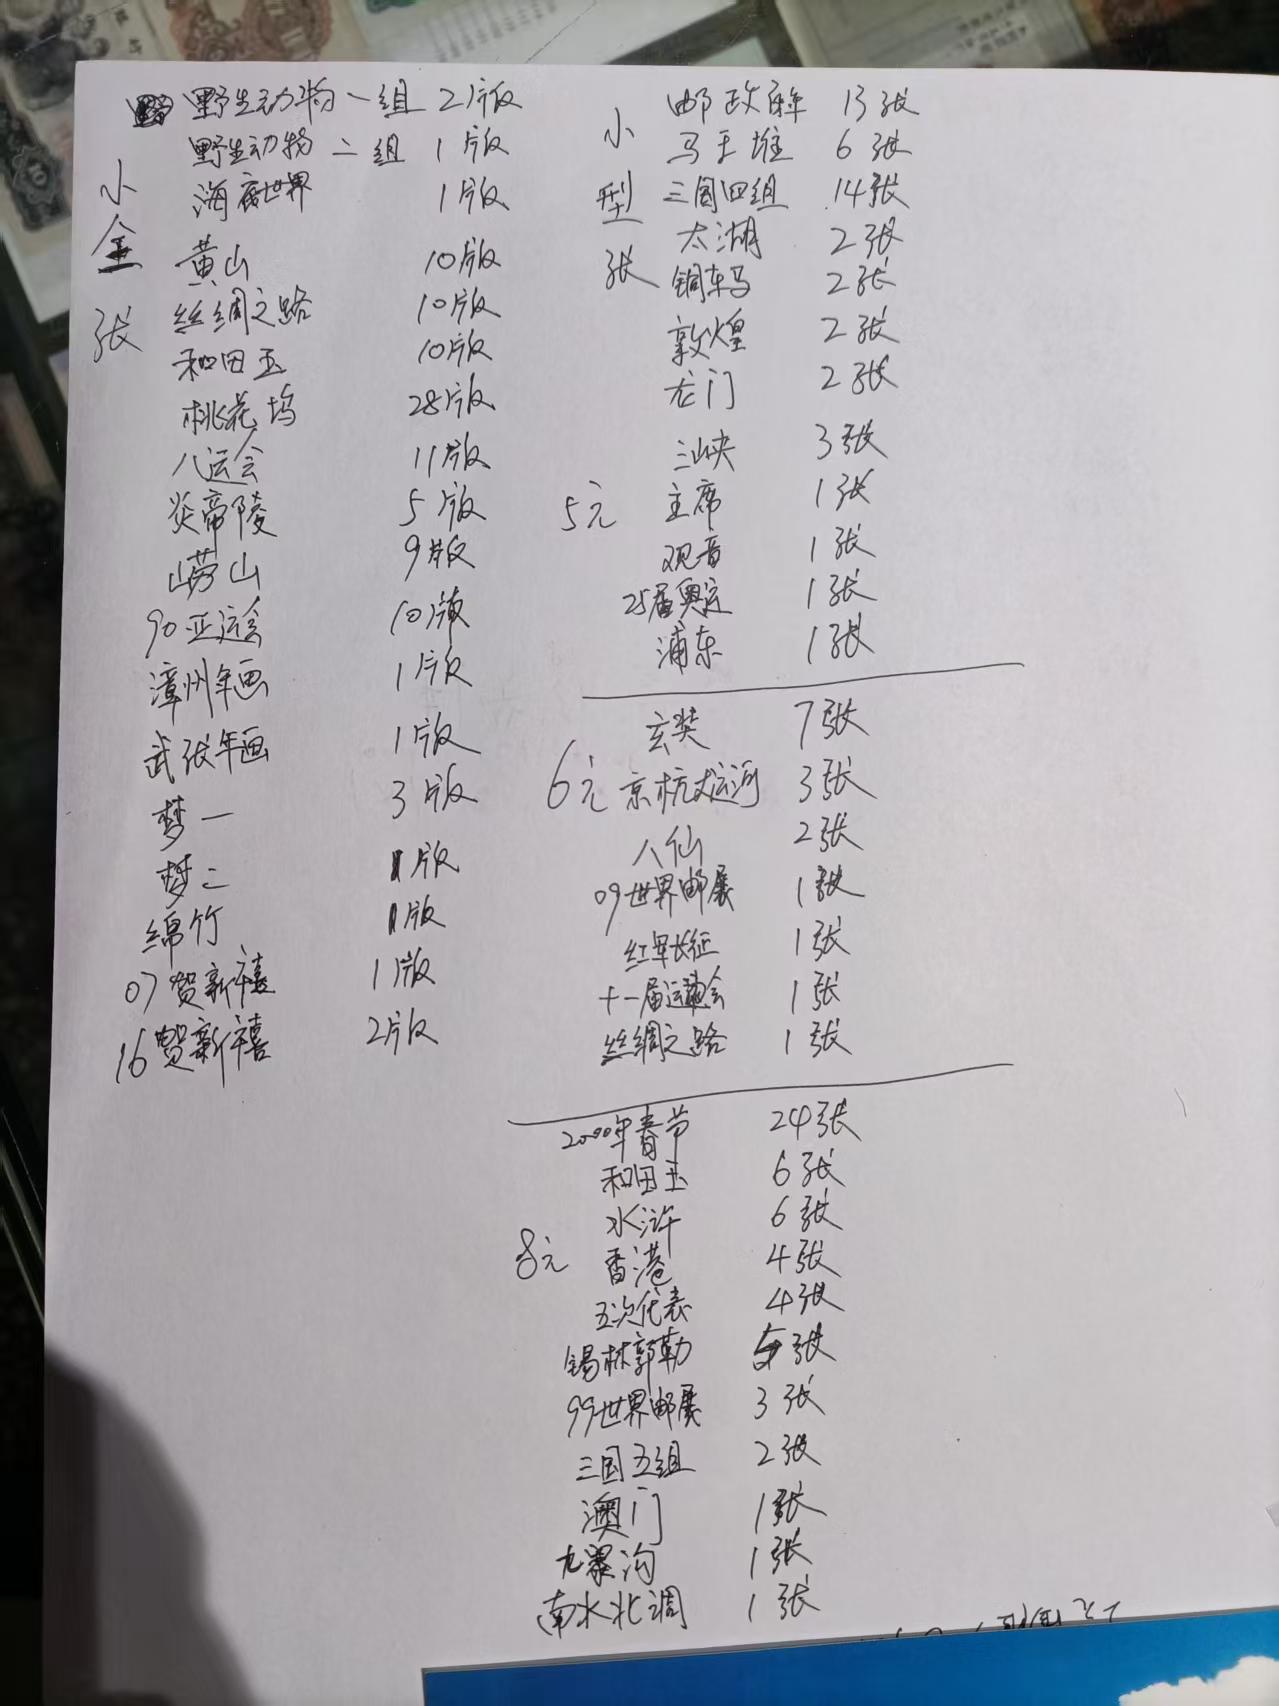 野生动物一组 2版
野生动物二组 1版
海底世界 1版
黄山 10版
丝绸之路 10版
和田玉 10版
桃花坞 28版
八运会 11版
炎帝陵 5版
崂山 9版
90亚运会 10版
漳州年画 1版
武强年画 1版
梦一 3版
梦二 1版
绵竹 1版
07贺新禧 1版
16贺新禧 2版
小全张
小型张
5元
邮政 13张
马王堆 6张
三国四组 14张
太湖 2张
铜车马 2张
敦煌 2张
龙门 2张
三峡 3张
主席 1张
观音 1张
25届奥运 1张
浦东 1张
6元
玄奘 7张
京杭大运河 3张
八仙 2张
09世界邮展 1张
红军长征 1张
十一届运动会 1张
丝绸之路 1张
8元
2000年春节 24张
和田玉 6张
水浒 6张
香港 4张
五次代表 4张
锡林郭勒 5张
99世界邮展 3张
三国五组 2张
澳门 1张
九寨沟 1张
南水北调 1张